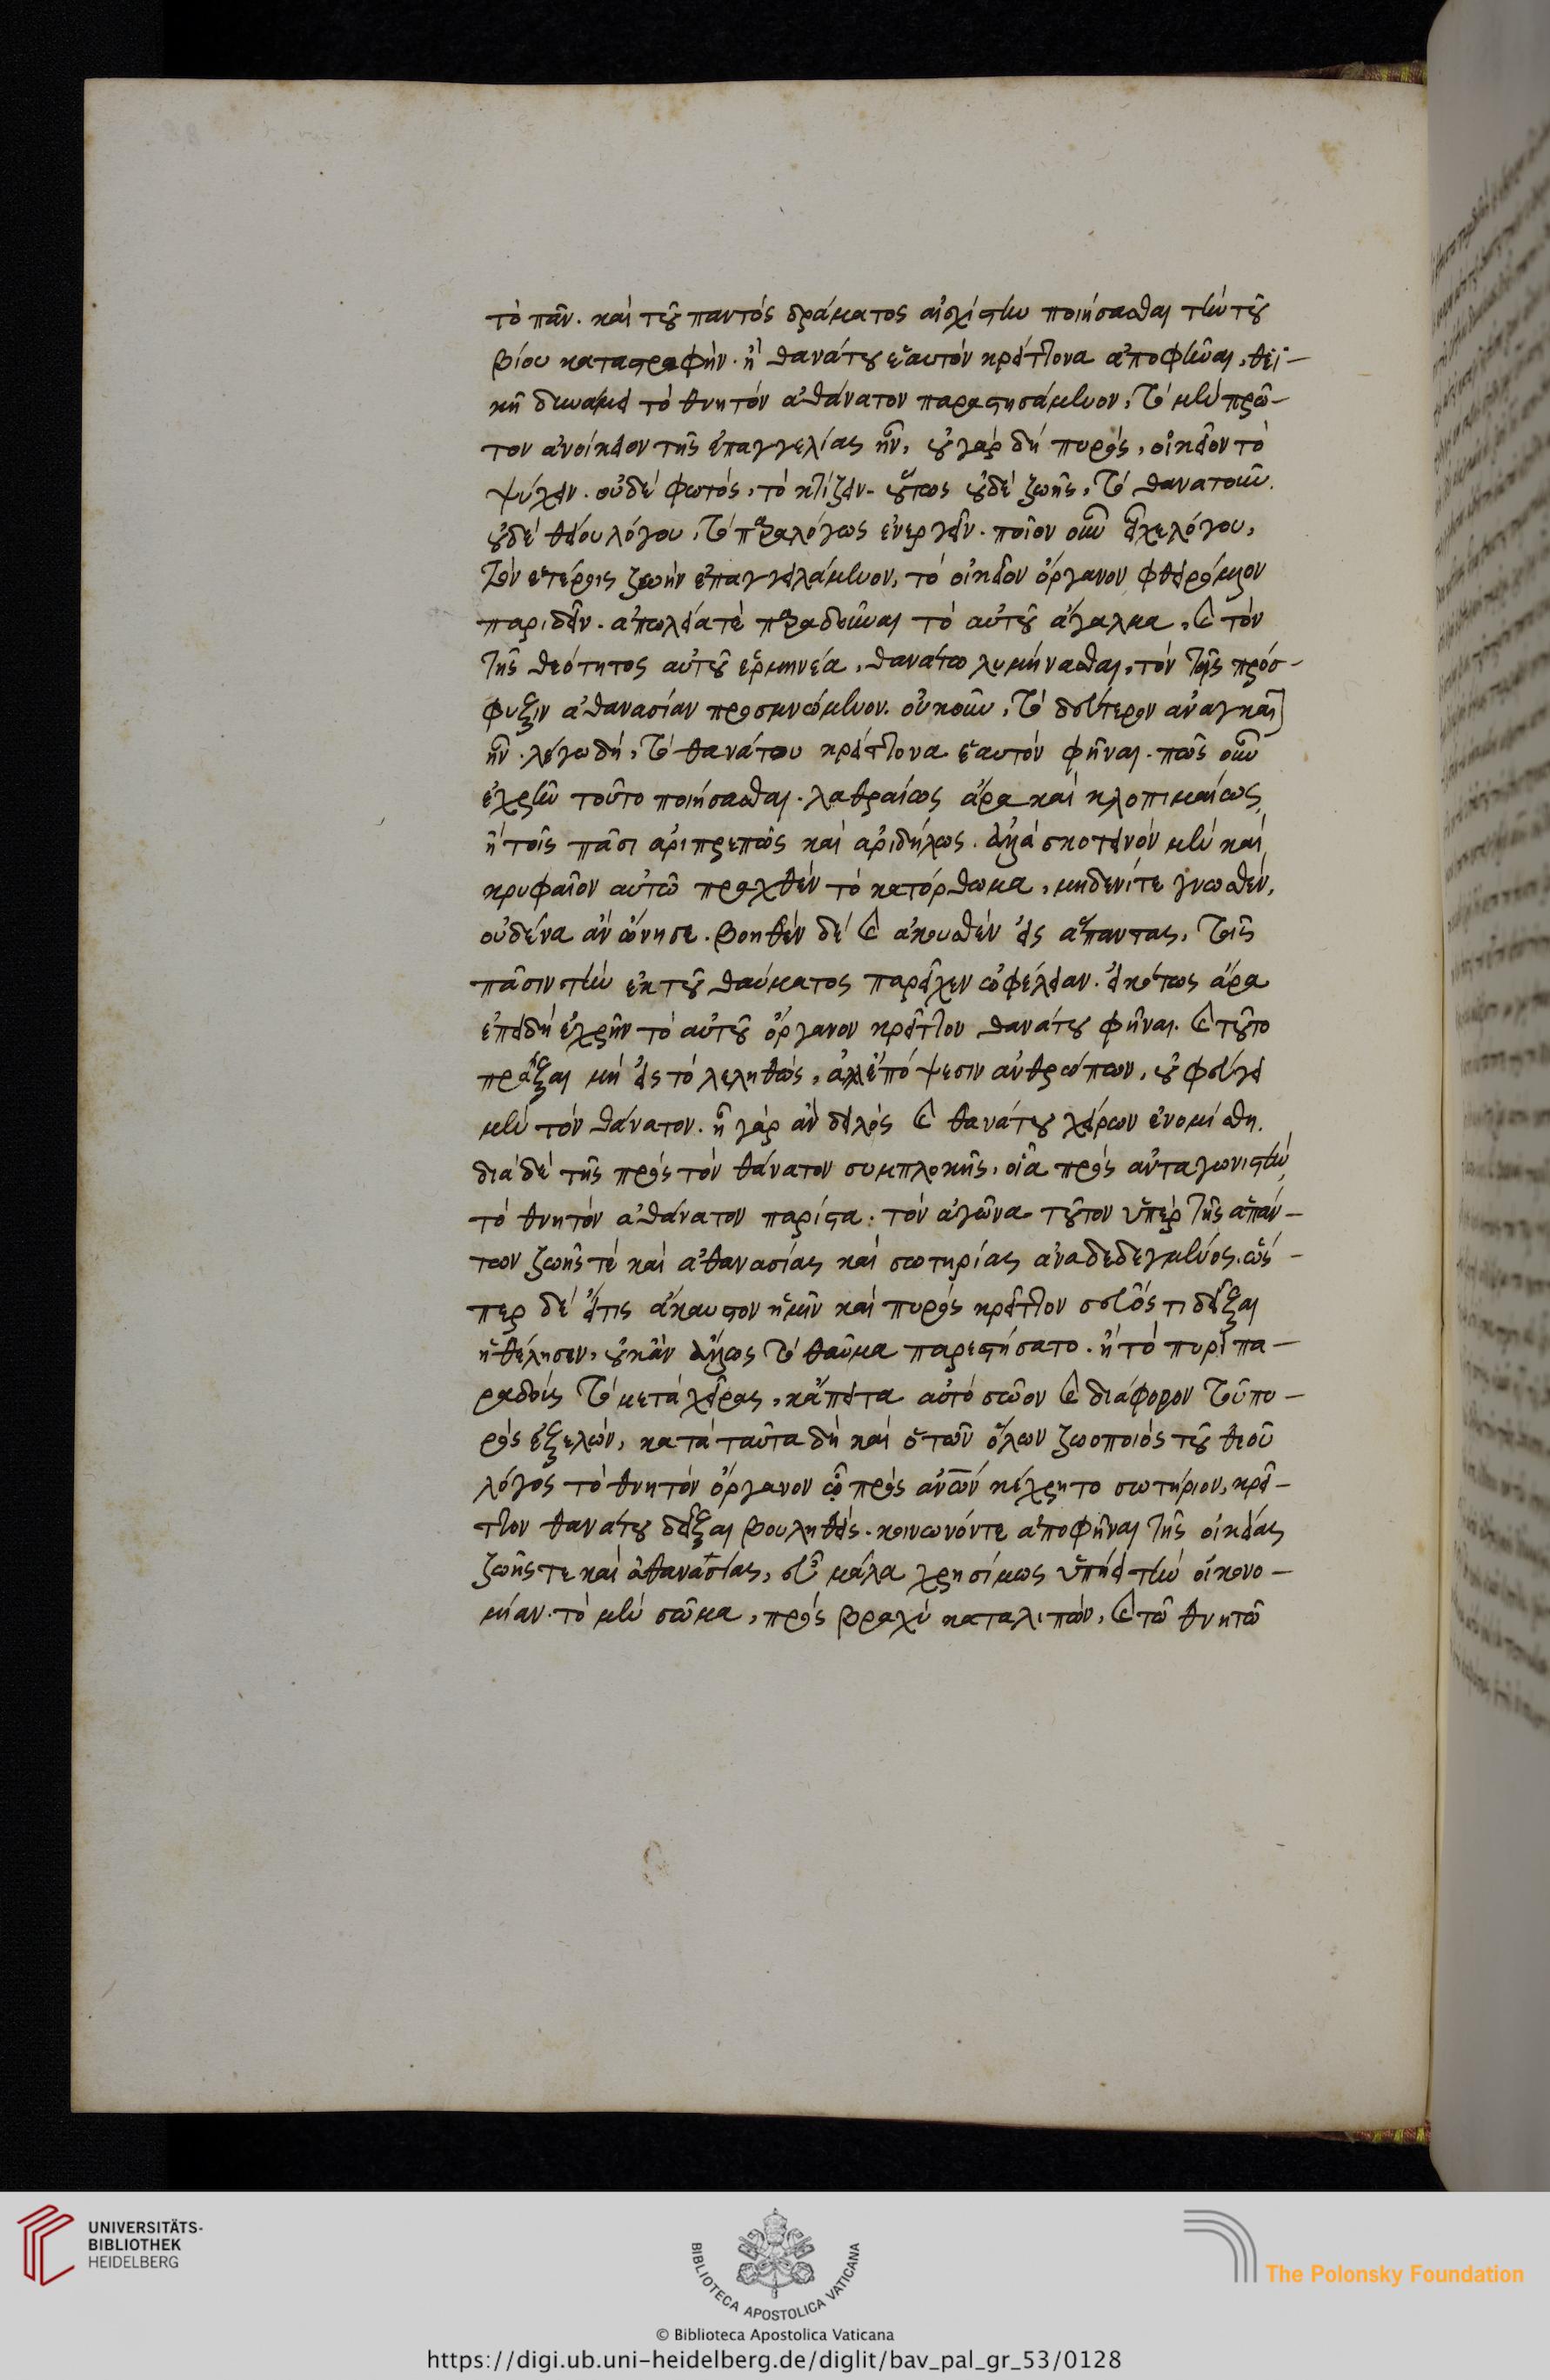 τὸ πᾶν. καὶ τοῦ παντὸς δράματος αἰσχίστην ποιήσασθαι τὴν τοῦ
βίου καταστροφήν. ἢ θανάτου ἑαυτὸν κρείττονα ἀποφῆναι, θεϊ-
κῇ δυνάμει τὸ θνητὸν ἀθάνατον παραστησάμενον, τὸ μὲν πρῶ-
τον ἀνοίκειον τῆς ἐπαγγελίας ἦν, οὐ γὰρ δὴ πυρός, οἰκεῖον τὸ
ψύχειν. οὐδὲ φωτός, τὸ κτίζειν. οὕτως οὐδὲ ζωῆς, τὸ θανατοῦν.
οὐδὲ θείου λόγου, τὸ παραλόγως ἐνεργεῖν. ποῖον οὖν εἶχε λόγου,
τὸν ἑτέροις ζωὴν ἐπαγγειλάμενον, τὸ οἰκεῖον ὄργανον φθειρόμενον
παριδεῖν. ἀπωλείᾳ τὲ παραδοῦναι τὸ αὐτοῦ ἄγαλμα, καὶ τὸν
τῆς θεότητος αὐτοῦ ἑρμηνέα, θανάτῳ λυμήνασθαι, τὸν τοῖς πρόσ-
φυξιν ἀθανασίαν προσμνώμενον. οὐκοῦν, τὸ δεύτερον ἀναγκαῖον
ἦν. λέγω δὴ, τὸ θανάτου κρείττονα ἑαυτὸν φῆναι. πῶς οὖν
ἐχρῆν τοῦτο ποιήσασθαι. λαθραίως ἄρα καὶ κλοπιμαίως,
ἢ τοῖς πᾶσι ἀριπρεπῶς καὶ ἀριδήλως. ἀλλὰ σκοτεινὸν μὲν καὶ
κρυφαῖον αὐτῷ πραχθὲν τὸ κατόρθωμα, μηδενί τε γνωσθέν,
οὐδένα ἂν ὤνησε. βοηθὲν δὲ καὶ ἀκουσθὲν εἰς ἅπαντας, τοῖς
πᾶσιν τὴν ἐκ τοῦ θαύματος παρεῖχεν ὠφέλειαν. εἰκότως ἄρα
ἐπειδὴ ἐχρῆν τὸ αὐτοῦ ὄργανον κρεῖττον θανάτου φῆναι. καὶ τοῦτο
πρᾶξαι μὴ εἰς τὸ λεληθώς, ἀλλ' ἐπόψεσιν ἀνθρώπων, οὐ φεύγει
μὲν τὸν θάνατον. ἦ γὰρ ἂν δειλὸς καὶ θανάτου χείρων ἐνομίσθη.
διὰ δὲ τῆς πρὸς τὸν θάνατον συμπλοκῆς, οἷα πρὸς ἀνταγωνιστὴν,
τὸ θνητὸν ἀθάνατον παρίστα: τὸν ἀγῶνα τοῦτον ὑπὲρ τῆς ἁπάν-
των ζωῆς τὲ καὶ ἀθανασίας καὶ σωτηρίας ἀναδεδεγμένος. ὥσ-
περ δὲ εἴ τις ἄκαυστον ἡμῖν καὶ πυρὸς κρεῖττον σκεῦός τι δεῖξαι
ἠθέλησεν, οὐκ ἂν ἄλλως τὸ θαῦμα παρεστήσατο. ἢ τὸ πυρὶ πα-
ραδοὺς τὸ μετὰ χεῖρας, κἄπειτα αὐτὸ σῶον καὶ διάφορον τοῦ πυ-
ρὸς ἐξελών, κατὰ ταῦτα δὴ καὶ ὁ τῶν ὅλων ζωοποιὸς τοῦ θεοῦ
λόγος τὸ θνητὸν ὄργανον ᾧ πρὸς ἀνῶν κέχρητο σωτήριον, κρεῖ-
ττον θανάτου δεῖξαι βουληθείς. κοινωνόν τε ἀποφῆναι τῆς οἰκείας
ζωῆς τε καὶ ἀθανασίας, εὖ μάλα χρησίμως ὑπῄει τὴν οἰκονο-
μίαν. τὸ μὲν σῶμα, πρὸς βραχὺ καταλιπὼν, καὶ τῷ θνητῷ
UNIVERSITÄTS-
BIBLIOTHEK
HEIDELBERG
BIBLIOTECA APOSTOLICA VATICANA
The Polonsky Foundation
© Biblioteca Apostolica Vaticana
https://digi.ub.uni-heidelberg.de/diglit/bav_pal_gr_53/0128